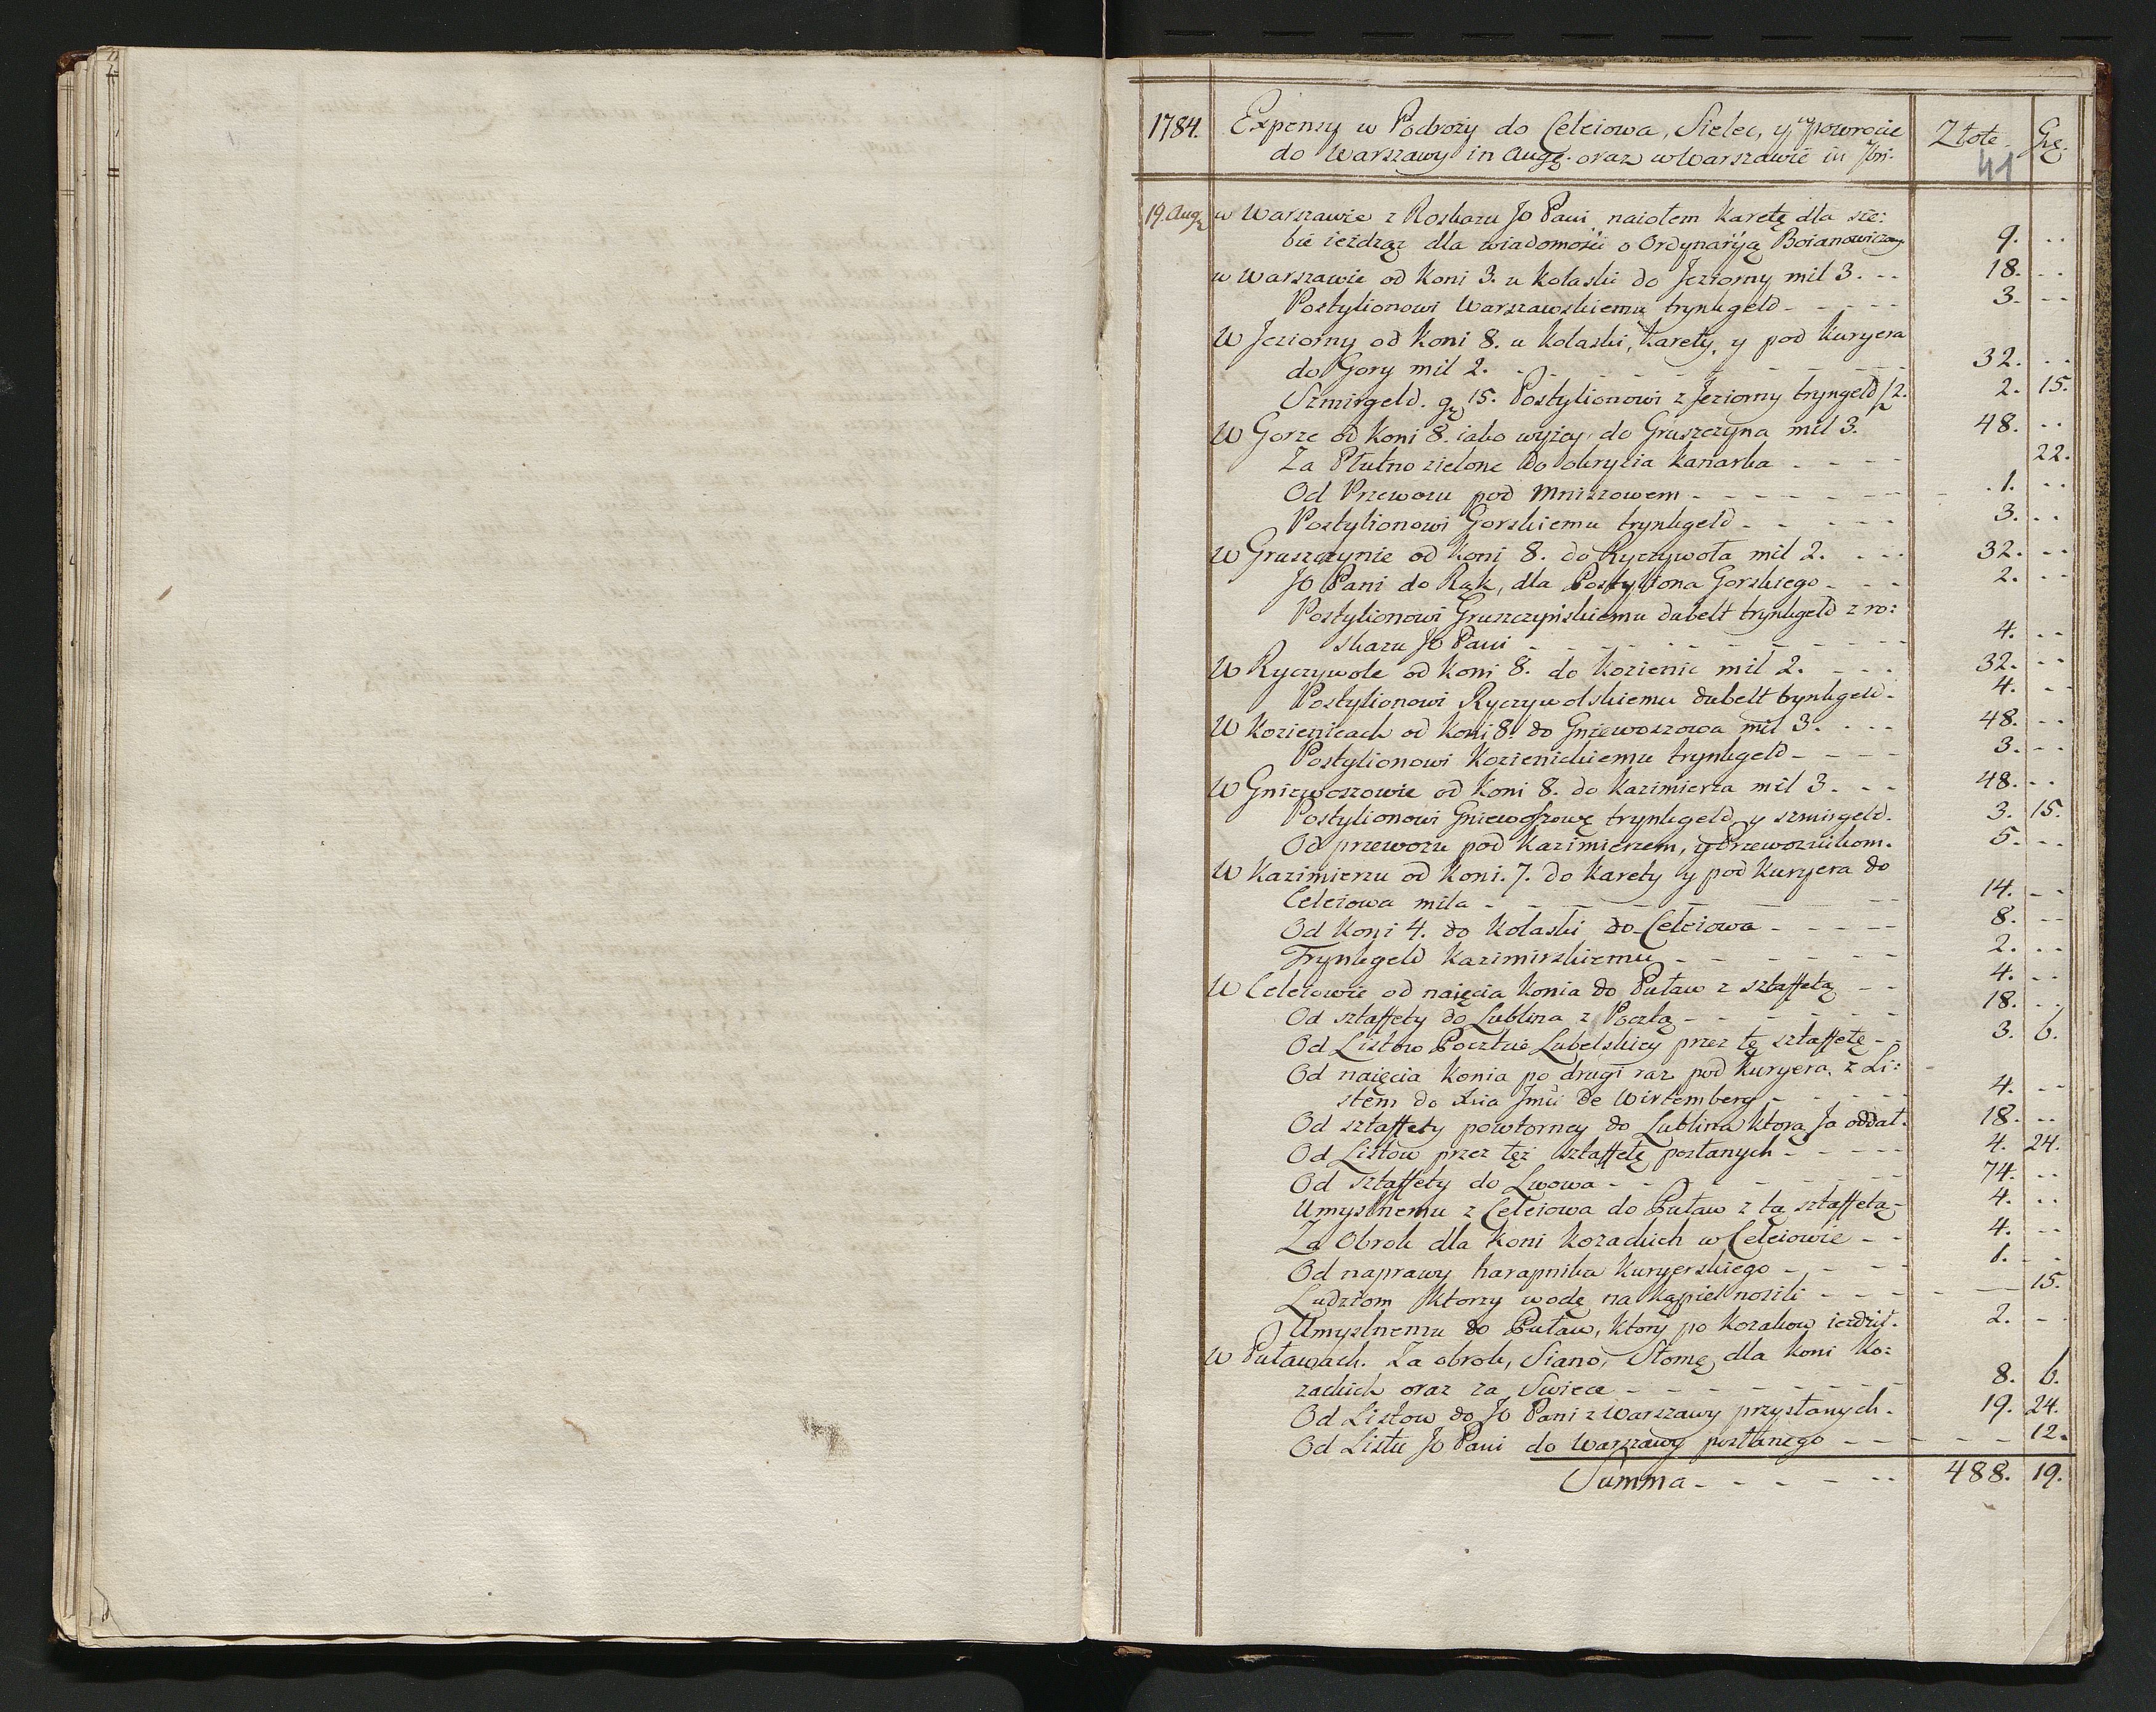 1784. Expensy w Podroży do Celeiowa, Sielec, y w powrocie Złote. Gę.
do Warszawy in Augę. oraz w Warszawie in 7bri. 41
19. Augę w Warszawie z Roskazu JO Pani naiołem karetę dla sie:
bie ieżdząc dla wiadomości o Ordynaryą Boianowiczow. 9. --
w Warszawie od koni 3. u kolaski do Jeziorny mil 3. -- 18. --
Postylionowi Warszawskiemu trynkgeld - - - - - 3. --
W Jeziorny od koni 8. u kolaski, karety, y pod kuryera
do Gory mil 2. - - - - - - - - - - - 32. --
Szmirgeld. gę 15. Postylionowi z Jeziorny tryngeld f 2. 2. 15.
W Gorze od koni 8. iako wyżey, do Gruszczyna mil 3. 48. --
Za Płutno zielone do okrycia kanarka - - - - 22.
Od Przewozu pod Mniszowem - - - - - - - 1. --
Postylionowi Gorskiemu trynkgeld - - - - - - 3. --
W Gruszczynie od koni 8. do Ryczywoła mil 2. - - - 32. --
JO Pani do Rąk, dla Postyliona Gorskiego - - - 2. --
Postylionowi Gruszczyńskiemu dubelt trynkgeld z ro:
skazu JO Pani - - - - - - - - - - 4. --
W Ryczywole od koni 8. do Kozienic mil 2. - - - - 32. --
Postylionowi Ryczywolskiemu dubelt trynkgeld. 4. --
W Kozienicach od koni 8. do Gniewoszowa mil 3. - - - 48. --
Postylionowi Kozienickiemu trynkgeld - - - - 3. --
W Gniewoszowie od koni 8. do Kazimierza mil 3. - - - 48. --
Postylionowi Gniewoszowę trynkgeld y szmirgeld. 3. 15.
Od przewozu pod Kazimierzem, y Przewoznikom. 5. --
W Kazimierzu od koni. 7. do karety y pod kuryera do
Celeiowa mila - - - - - - - - - - 14. --
Od koni 4. do kolaski do Celeiowa - - - - - 8. --
Trynkgeld Kazimirskiemu - - - - - - 2. --
W Celeiowie od naięcia konia do Puław z sztaffetą - - 4. --
Od sztaffety do Lublina z Pocztą - - - - - - - 18. --
Od Listow Pocztcie Lubelskiey przez tę sztaffetę - - 3. 6.
Od naięcia konia po drugi raz pod kuryera, z Li:
stem do Xcia Jmći de Wirtemberg - - - - - 4. --
Od sztaffety powtorney do Lublina ktorą Ja oddał. 18. --
Od Listow przez tęż sztaffetę posłanych - - - - - 4. 24.
Od sztaffety do Lwowa - - - - - - - - 74. --
Umyslnemu z Celeiowa do Puław z tą sztaffetą - 4. --
Za Obrok dla koni kozackich w Celeiowie - - 4. --
Od naprawy harapnika kuryerskiego - - - - 1. --
Ludziom ktorzy wodę na kąpiel nosili - - - - - 15.
Umyslnemu do Puław, ktory po kozakow iezdził. 2. --
W Puławach. Za obrok, Siano, Słomę, dla koni ko:
zackich oraz za Swiece - - - - - - - - - 8. 6.
Od Listow do JO Pani z Warszawy przysłanych. 19. 24.
Od Listu JO Pani do Warszawy posłanego - - - - - - 12.
Summa - - - - - -- 488. 19.